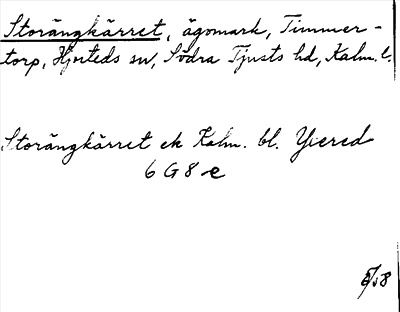 Storängkärret, ägomark, Timmer-
torp, Hjorteds sn, Södra Tjusts hd, Kalm. l.
Storängkärret ek Kalm. bl. Yxered
6 G 8 e